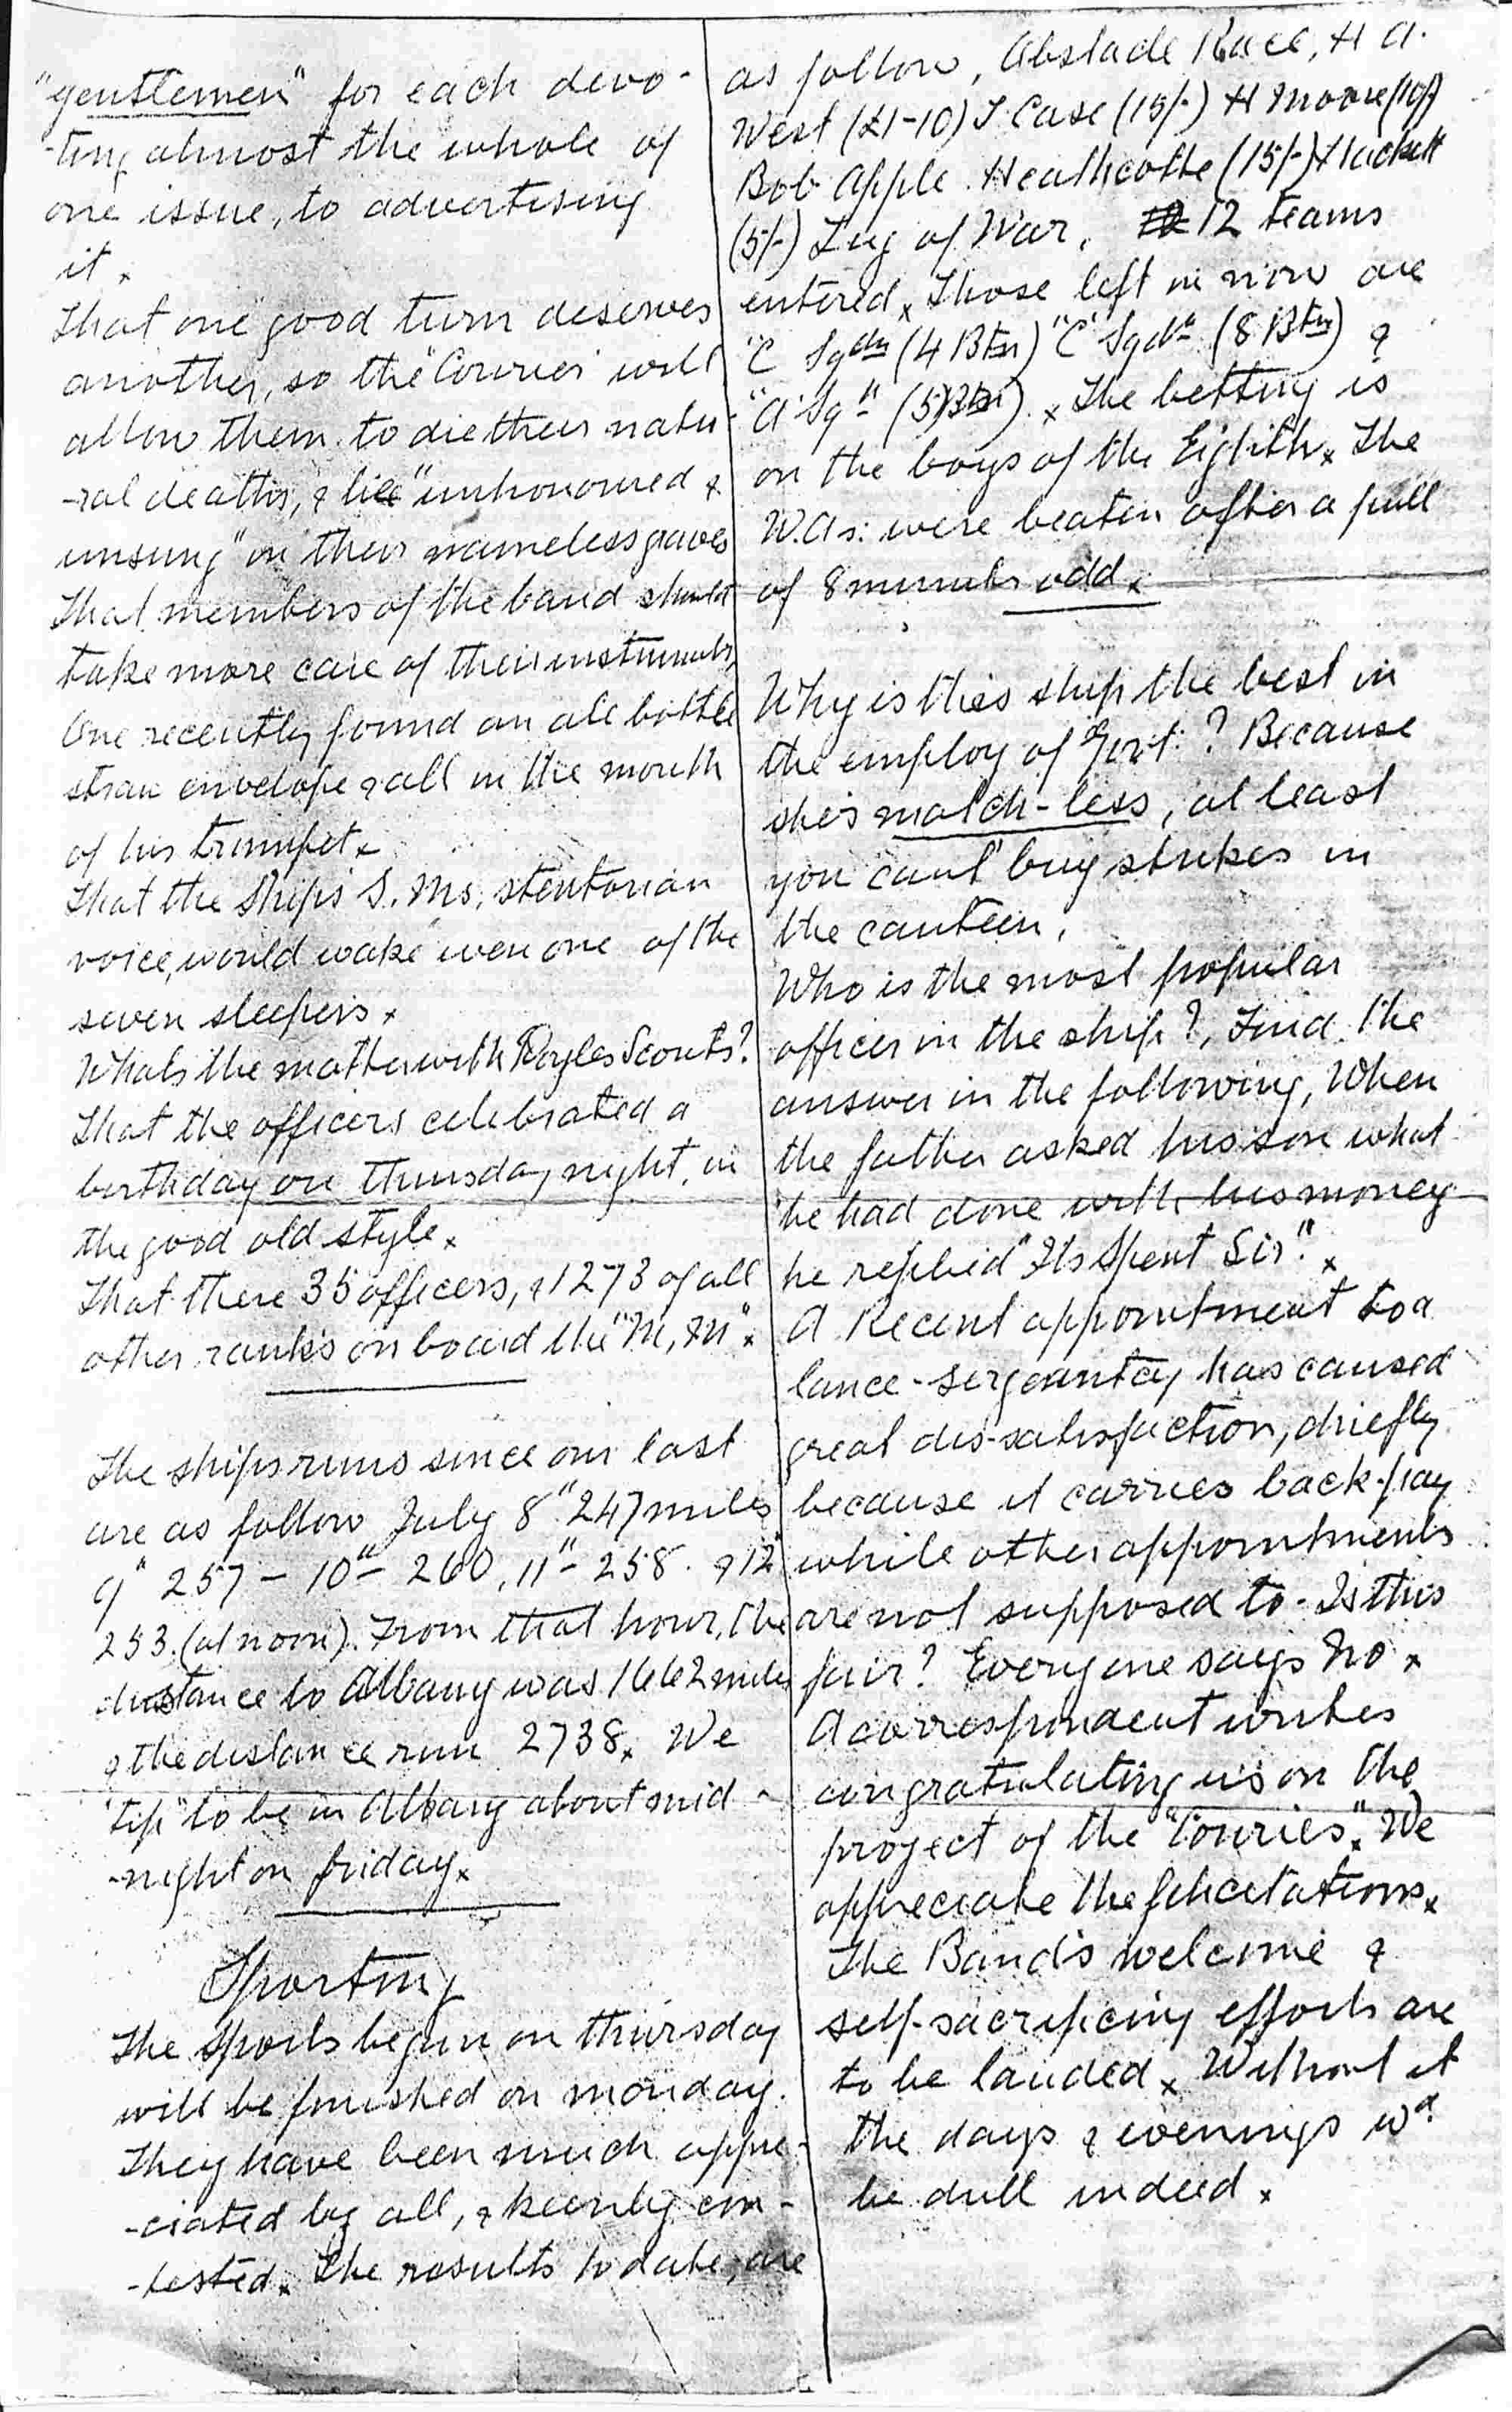 "gentlemen" for each devo-
-ting almost the whole of
one issue, to advertising
it x
That one good turn deserves
another, so the "Courier" will
allow them to die their natu-
-ral deaths, & lie "unhonoured &
unsung" in their nameless graves
That members of the band should
take more care of their instruments,
One recently found an ale bottle
straw envelope & all in the mouth
of his trumpet x
That the Ships S. Ms, stentorian
voice, would wake even one of the
seven sleepers x
Whats the matter with Royles Scouts?
That the officers celebrated a
birthday on thursday night, in
the good old style x
That there 35 officers, & 1273 of all
other ranks on board the "M, M" x
The ships runs since our last
are as follow July 8" 247 miles
9" 257 - 10" - 260, 11" - 258. & 12"
253. (at noon). From that hour, the
distance to Albany was 1662 miles
& the distance run 2738 x We
"tip" to be in Albany about mid-
-night on friday x
Sporting
The Sports begun on thursday
will be finished on monday.
They have been much appre-
-ciated by all, & keenly con-
-tested x The results to date, are
as follow, Obstacle Race, H A.
West (£1-10) J. Case (15/-) H Moore (10/)
Bob Apple. Heathcotte (15/-) Hackett
(5/-) Tug of War. 12 teams
entered x Those left in now are
"C Sqdn (4 Btn) "C" Sqdn (8 Btn) &
"A" Sqn (5 Btn). x The betting is
on the boys of the Eighth x The
W.As: were beaten after a pull
of 8 minutes odd x
Why is this ship the best in
the employ of Govt. ? Because
she's match-less, at least
you can't buy strikes in
the canteen,
Who is the most popular
officer in the ship?, Find the
answer in the following, When
the father asked his son what
he had done with his money
he replied "Its Spent Sir". x
A Recent appointment to a
lance-sergeantcy has caused
great dis-satisfaction, chiefly
because it carries back-pay
while other appointments
are not supposed to - Is this
fair? Everyone says No x
A correspondent writes
congratulating us on the
project of the "Courier". x We
appreciate the felicitations x
The Band's welcome &
self-sacrificing efforts are
to be lauded x Without it
the days & evenings wd
be dull indeed x